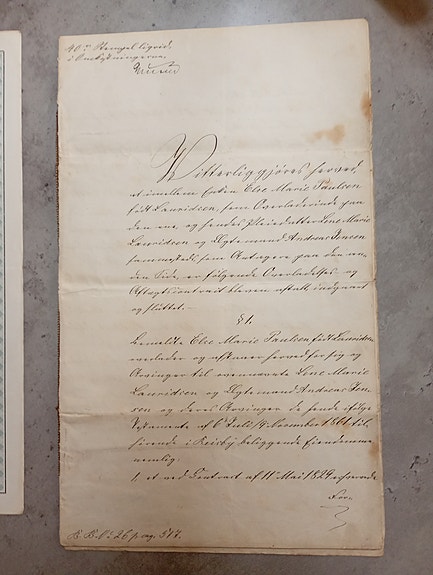 40 rd. Stempel ligeid.
i Omkostningerne
Witterliggjøres herved,
at imellem Enken Else Marie Paulsen
født Lauridsen, som Overladerinde paa
den ene, og hendes Pleiedatter Lene Marie
Lauridsen og Ægtemand Andreas Jensen
sammesteds som Antagere paa den an-
den Side, er følgende Overladelses- og
Aftægtscontract bleven aftalt, indgaaet
og sluttet.
§ 1.
Bemeldte Else Marie Paulsen født Lauridsen
overlader og afstaaer herved for sig og
Arvinger til ovennævnte Lene Marie
Lauridsen og Ægtemand Andreas Jen-
sen og deres Arvinger de hende ifølge
Testamente af 6 Juli/9 November 1861 til-
hørende i Reisby beliggende Eiendomme
nemlig:
1, et ved Contract af 11 Mai 1829 erhvervede
For-
B. B. No 26 pag. 577.